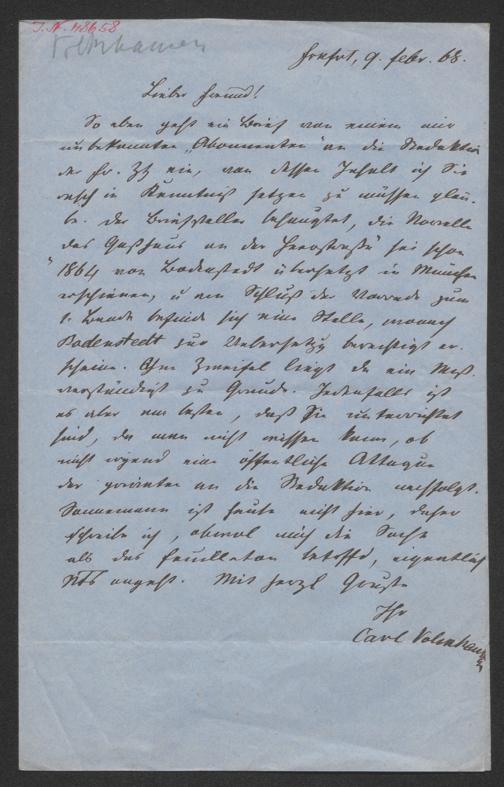 I. N. 48658
Volkhausen
Frkfrt, 9. Febr. 68.
Lieber Freund!
So eben geht ein Brief von einem mir
unbekannten „Abonnenten" an die Redaktion
der Fr. Ztg ein, von dessen Inhalt ich Sie
rasch in Kenntniß setzen zu müssen glau-
be. Der Briefsteller behauptet, die Novelle
„das Gasthaus an der Heerstraße" sei schon
1864 von Bodenstedt übersetzt in München
erschienen, u am Schluß der Vorrede zum
1. Bande befinde sich eine Stelle, wonach
Bodenstedt zur Uebersetzg berechtigt er-
scheine. Ohne Zweifel liegt da ein Miß-
verständniß zu Grunde. Jedenfalls ist
es aber am besten, daß Sie unterrichtet
sind, da man nicht wissen kann, ob
nicht irgend eine öffentliche Attaque
der privaten an die Redaktion nachfolgt.
Sonnemann ist heute nicht hier, daher
schreibe ich, obwol mich die Sache
als das Feuilleton betreffd, eigentlich
Nichts angeht. Mit herzl Gruße
Ihr
Carl Volckhausen